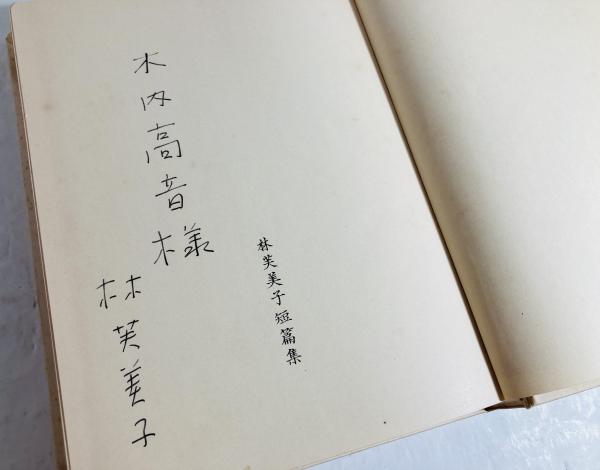 林芙美子短篇集
木内高音様
林芙美子